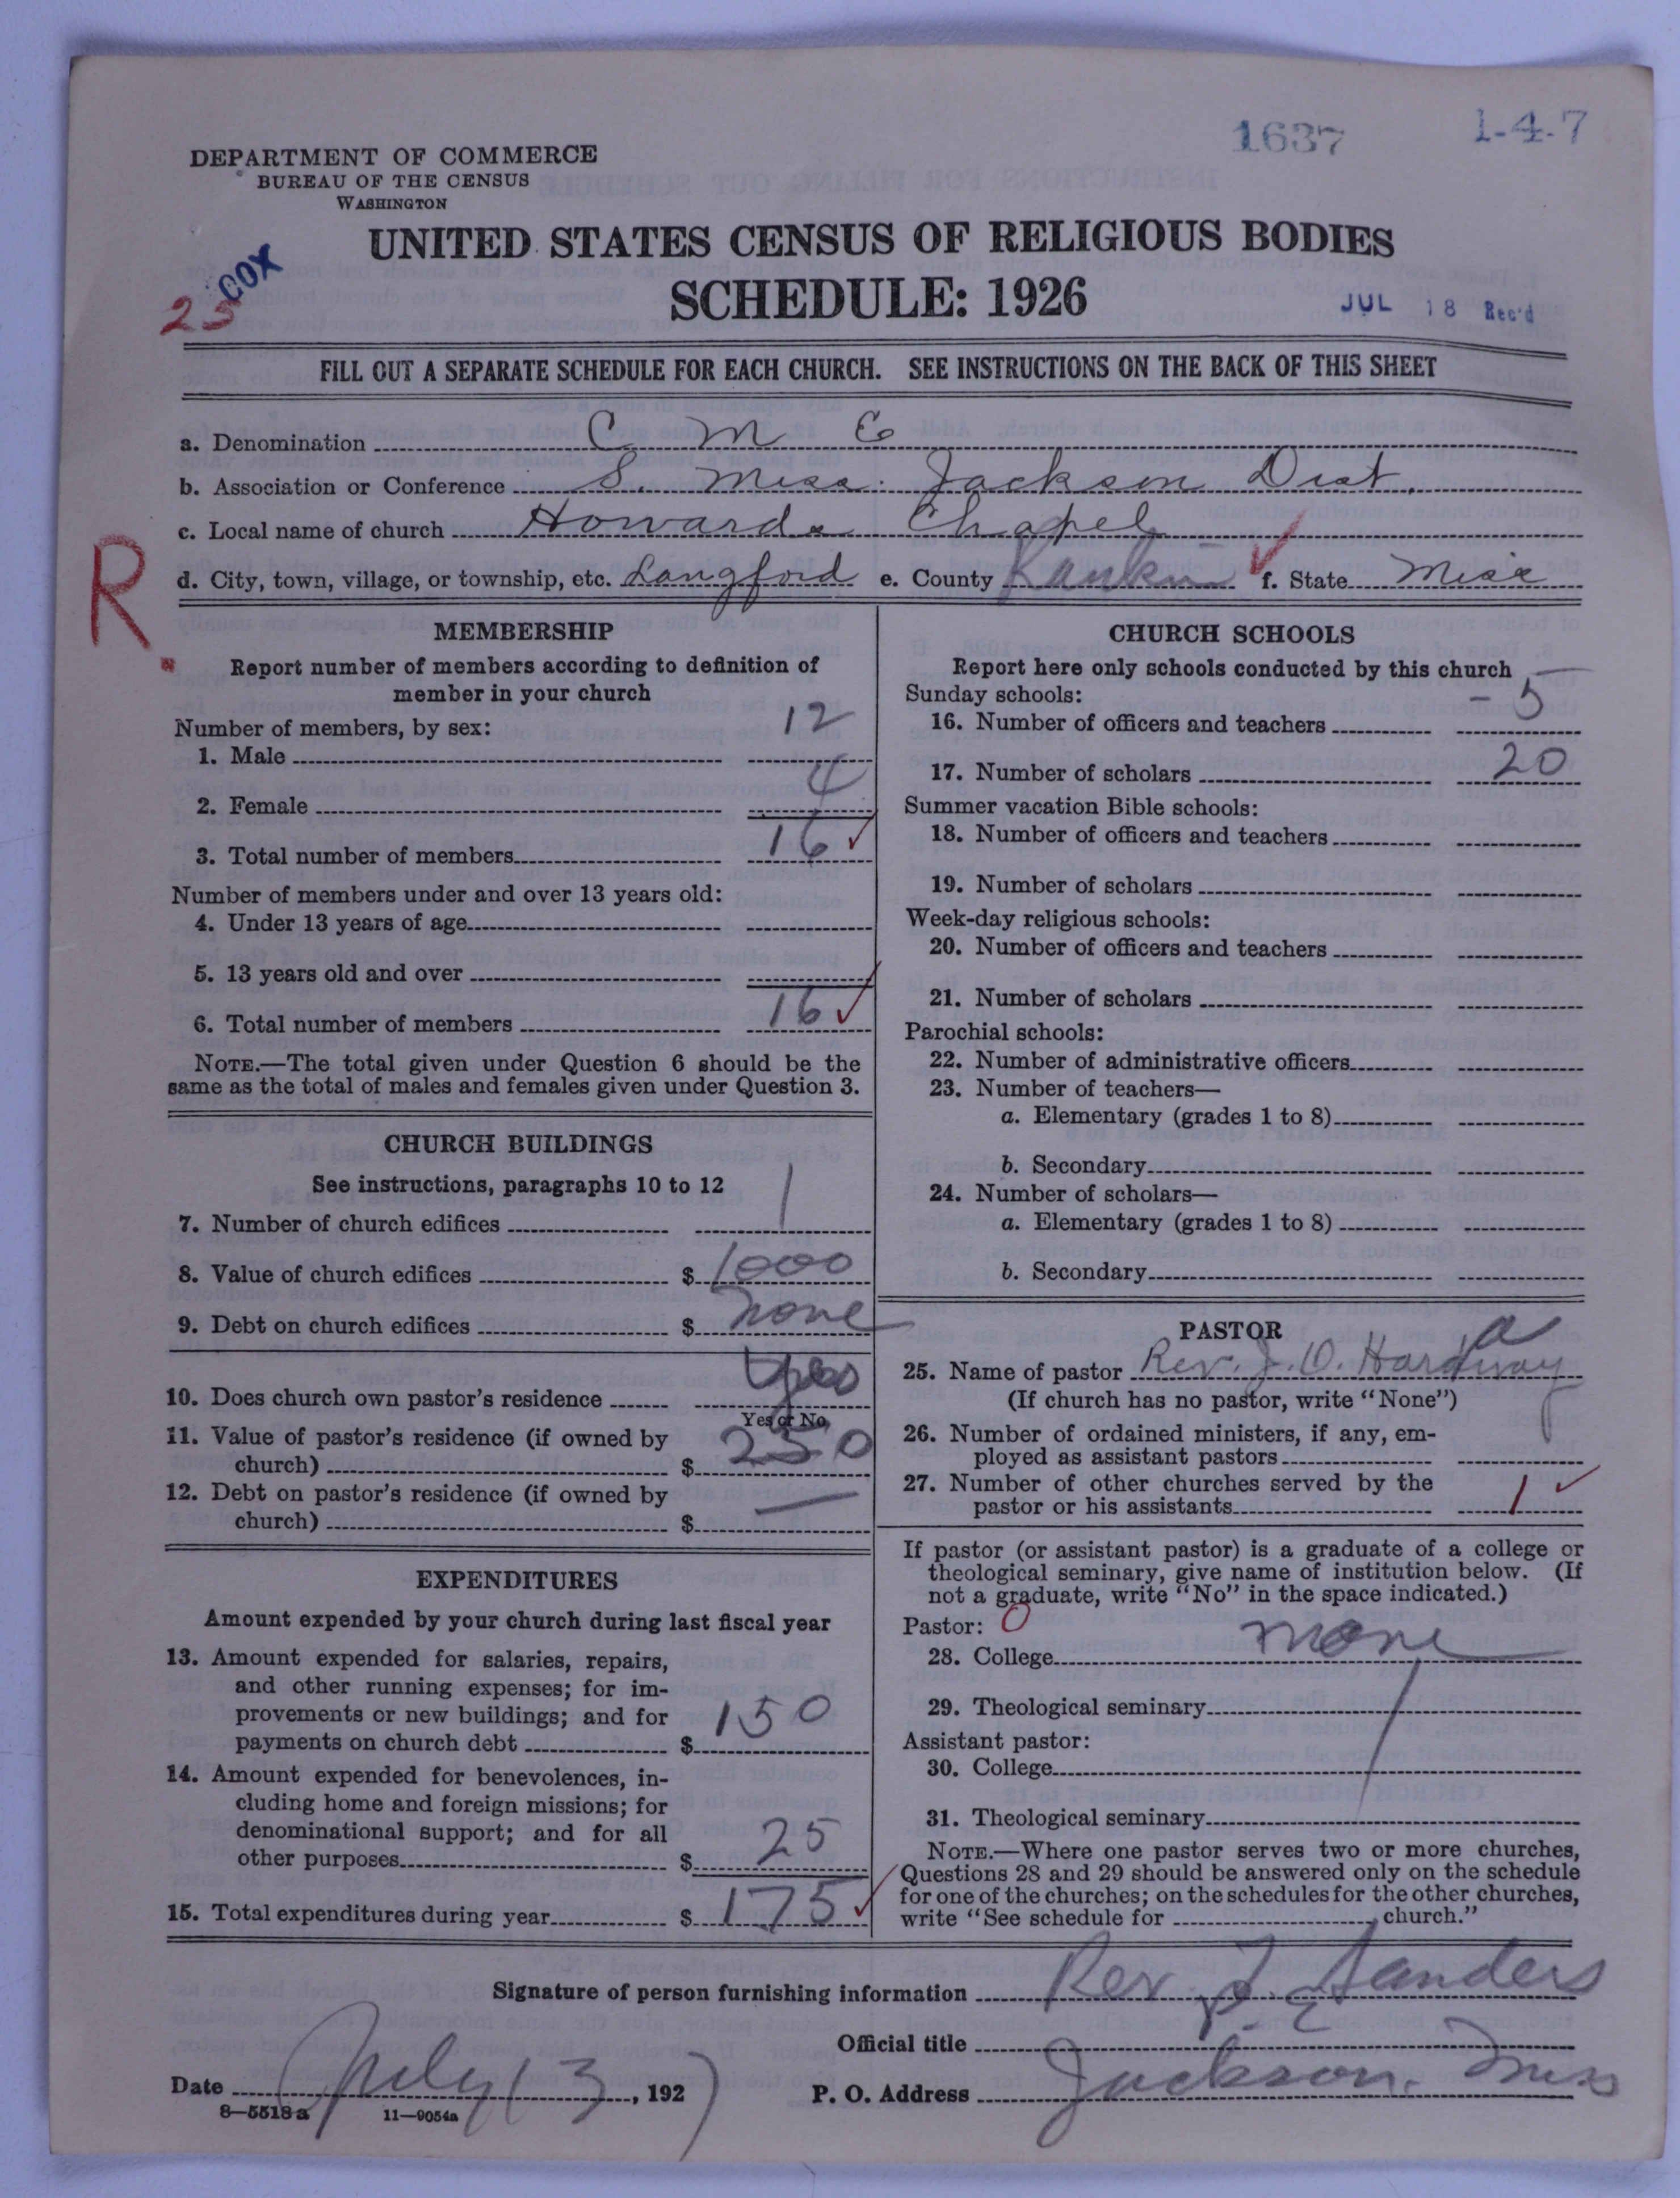 1637 1-4-7
DEPARTMENT OF COMMERCE
BUREAU OF THE CENSUS
WASHINGTON
UNITED STATES CENSUS OF RELIGIOUS BODIES
23 COX
SCHEDULE: 1926
JUL 18 Rec'd
FILL OUT A SEPARATE SCHEDULE FOR EACH CHURCH. SEE INSTRUCTIONS ON THE BACK OF THIS SHEET
a. Denomination C M E
b. Association or Conference S. Miss. Jackson Dist.
c. Local name of church Howards Chapel
R.
d. City, town, village, or township, etc. Langford e. County Rankin ✓ f. State Miss
MEMBERSHIP
Report number of members according to definition of
member in your church
Number of members, by sex:
1. Male 12
2. Female 4
3. Total number of members 16 ✓
Number of members under and over 13 years old:
4. Under 13 years of age
5. 13 years old and over
6. Total number of members 16 ✓
NOTE.—The total given under Question 6 should be the
same as the total of males and females given under Question 3.
CHURCH BUILDINGS
See instructions, paragraphs 10 to 12
7. Number of church edifices 1
8. Value of church edifices $ 1000
9. Debt on church edifices $ none
10. Does church own pastor's residence yes
Yes or No
11. Value of pastor's residence (if owned by
church) $ 250
12. Debt on pastor's residence (if owned by
church) $ —
EXPENDITURES
Amount expended by your church during last fiscal year
13. Amount expended for salaries, repairs,
and other running expenses; for im-
provements or new buildings; and for
payments on church debt $ 150
14. Amount expended for benevolences, in-
cluding home and foreign missions; for
denominational support; and for all
other purposes $ 25
15. Total expenditures during year $ 175 ✓
CHURCH SCHOOLS
Report here only schools conducted by this church
Sunday schools:
16. Number of officers and teachers - 5
17. Number of scholars 20
Summer vacation Bible schools:
18. Number of officers and teachers
19. Number of scholars
Week-day religious schools:
20. Number of officers and teachers
21. Number of scholars
Parochial schools:
22. Number of administrative officers
23. Number of teachers—
a. Elementary (grades 1 to 8)
b. Secondary
24. Number of scholars—
a. Elementary (grades 1 to 8)
b. Secondary
PASTOR
25. Name of pastor Rev. J. O. Hardway
(If church has no pastor, write "None")
26. Number of ordained ministers, if any, em-
ployed as assistant pastors
27. Number of other churches served by the
pastor or his assistants 1 ✓
If pastor (or assistant pastor) is a graduate of a college or
theological seminary, give name of institution below. (If
not a graduate, write "No" in the space indicated.)
Pastor: O
28. College none
29. Theological seminary
Assistant pastor:
30. College
31. Theological seminary
NOTE.—Where one pastor serves two or more churches,
Questions 28 and 29 should be answered only on the schedule
for one of the churches; on the schedules for the other churches,
write "See schedule for church."
Signature of person furnishing information Rev. Sanders
Official title P. E
Date July 13, 1927 P. O. Address Jackson, Miss
8—5518 a 11—9054a